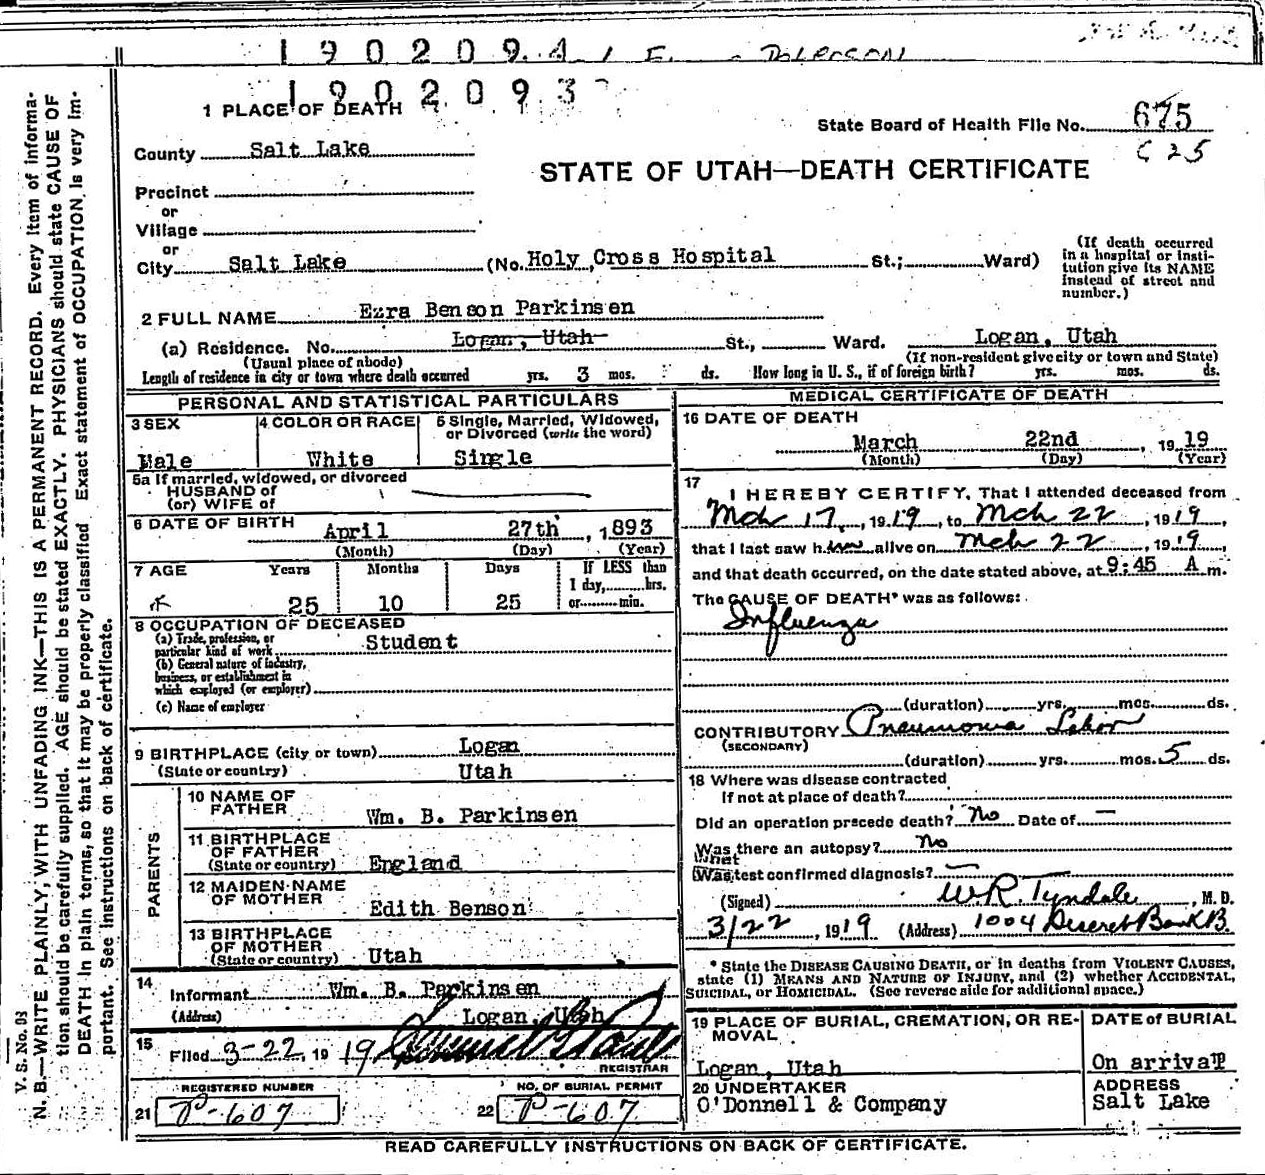 190209.4 / E. Peterson
1902093
1 PLACE OF DEATH
State Board of Health File No. 675
625
County Salt Lake
STATE OF UTAH—DEATH CERTIFICATE
Precinct
or
Village
or
City Salt Lake (No. Holy Cross Hospital St.; Ward)
(If death occurred
in a hospital or insti-
tution give its NAME
instead of street and
number.)
2 FULL NAME Ezra Benson Parkinsen
(a) Residence. No. Logan, Utah St., Ward. Logan, Utah
(Usual place of abode) (If non-resident give city or town and State)
Length of residence in city or town where death occurred yrs. 3 mos. ds. How long in U. S., if of foreign birth? yrs. mos. ds.
PERSONAL AND STATISTICAL PARTICULARS
3 SEX
Male
4 COLOR OR RACE
White
5 Single, Married, Widowed,
or Divorced (write the word)
Single
5a If married, widowed, or divorced
HUSBAND of
(or) WIFE of
6 DATE OF BIRTH
April 27th, 1893
(Month) (Day) (Year)
7 AGE Years Months Days If LESS than
1 day, hrs.
25 10 25 or min.
8 OCCUPATION OF DECEASED
(a) Trade, profession, or
particular kind of work Student
(b) General nature of industry,
business, or establishment in
which employed (or employer)
(c) Name of employer
9 BIRTHPLACE (city or town) Logan
(State or country) Utah
PARENTS
10 NAME OF
FATHER Wm. B. Parkinsen
11 BIRTHPLACE
OF FATHER
(State or country) England
12 MAIDEN NAME
OF MOTHER Edith Benson
13 BIRTHPLACE
OF MOTHER
(State or country) Utah
14
Informant Wm. B. Parkinsen
(Address) Logan, Utah
15
Filed 3-22, 1919
REGISTRAR
REGISTERED NUMBER
21 P-607
NO. OF BURIAL PERMIT
22 P-607
MEDICAL CERTIFICATE OF DEATH
16 DATE OF DEATH
March 22nd 1919
(Month) (Day) (Year)
17
I HEREBY CERTIFY, That I attended deceased from
Mch 17, 1919, to Mch 22, 1919,
that I last saw him alive on Mch 22, 1919,
and that death occurred, on the date stated above, at 9:45 A m.
The CAUSE OF DEATH* was as follows:
Influenza
(duration) yrs. mos. ds.
CONTRIBUTORY Pneumonia Lobar
(SECONDARY)
(duration) yrs. mos. 5 ds.
18 Where was disease contracted
If not at place of death?
Did an operation precede death? No Date of —
Was there an autopsy? No
What
(Was test confirmed diagnosis? —
(Signed) W R. Tyndale, M. D.
3/22, 1919 (Address) 1004 Deseret Bank B.
* State the DISEASE CAUSING DEATH, or in deaths from VIOLENT CAUSES,
state (1) MEANS AND NATURE OF INJURY, and (2) whether ACCIDENTAL,
SUICIDAL, or HOMICIDAL. (See reverse side for additional space.)
19 PLACE OF BURIAL, CREMATION, OR RE-
MOVAL
Logan, Utah
DATE of BURIAL
On arrival
20 UNDERTAKER
O'Donnell & Company
ADDRESS
Salt Lake
READ CAREFULLY INSTRUCTIONS ON BACK OF CERTIFICATE.
V. S. No. 93
N. B.—WRITE PLAINLY, WITH UNFADING INK—THIS IS A PERMANENT RECORD. Every item of informa-
tion should be carefully supplied. AGE should be stated EXACTLY. PHYSICIANS should state CAUSE OF
DEATH in plain terms, so that it may be properly classified. Exact statement of OCCUPATION is very im-
portant. See instructions on back of certificate.